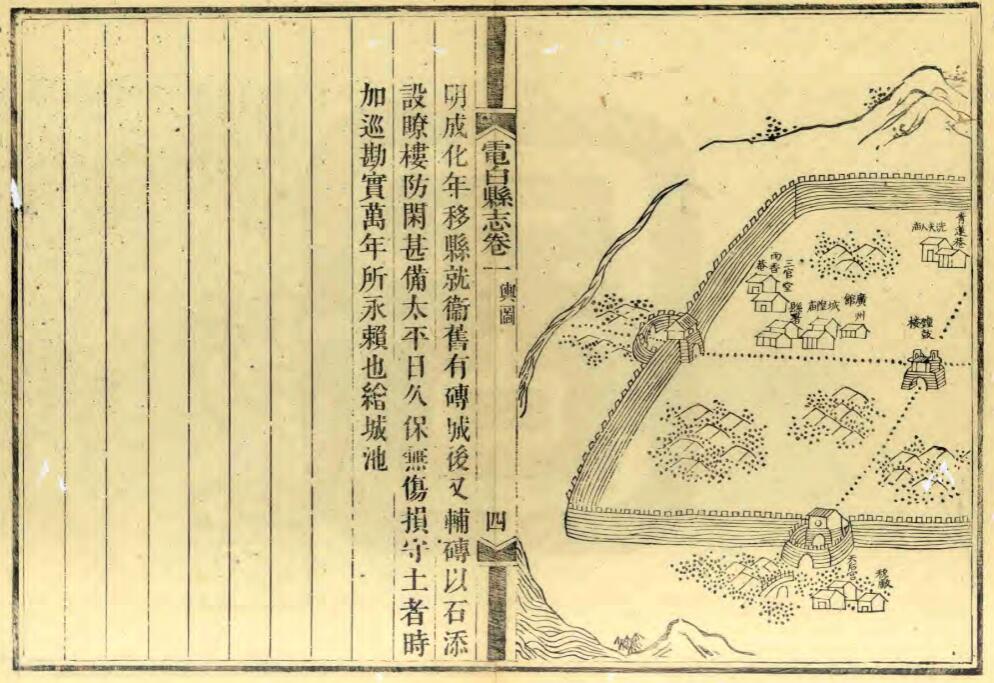 青蓮菴
冼夫人廟
鐘鼓樓
廣州館
城隍廟
縣署
三官堂
兩香菴
天后宮
電白縣志卷一
輿圖
四
明成化年移縣就衞舊有磚城後又輔磚以石添
設瞭樓防閑甚備太平日久保無傷損守土者時
加巡勘實萬年所永賴也繪城池